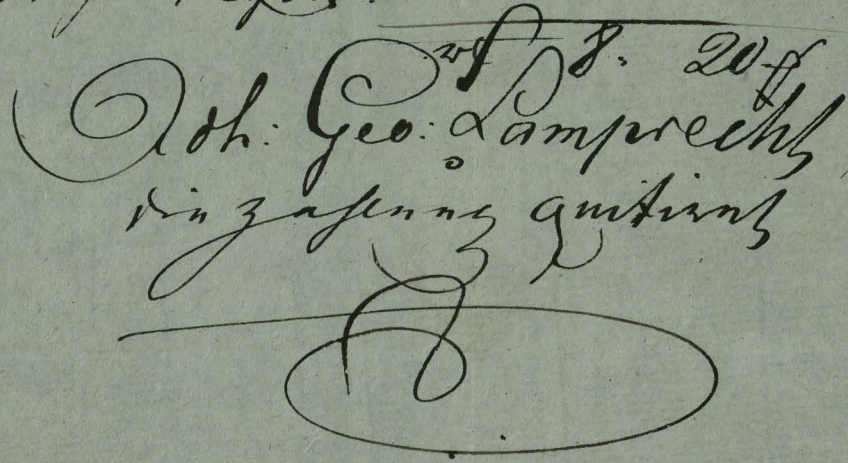 rf 8. 20 f
Joh: Geo: Lamprecht
die zahlung quitirent